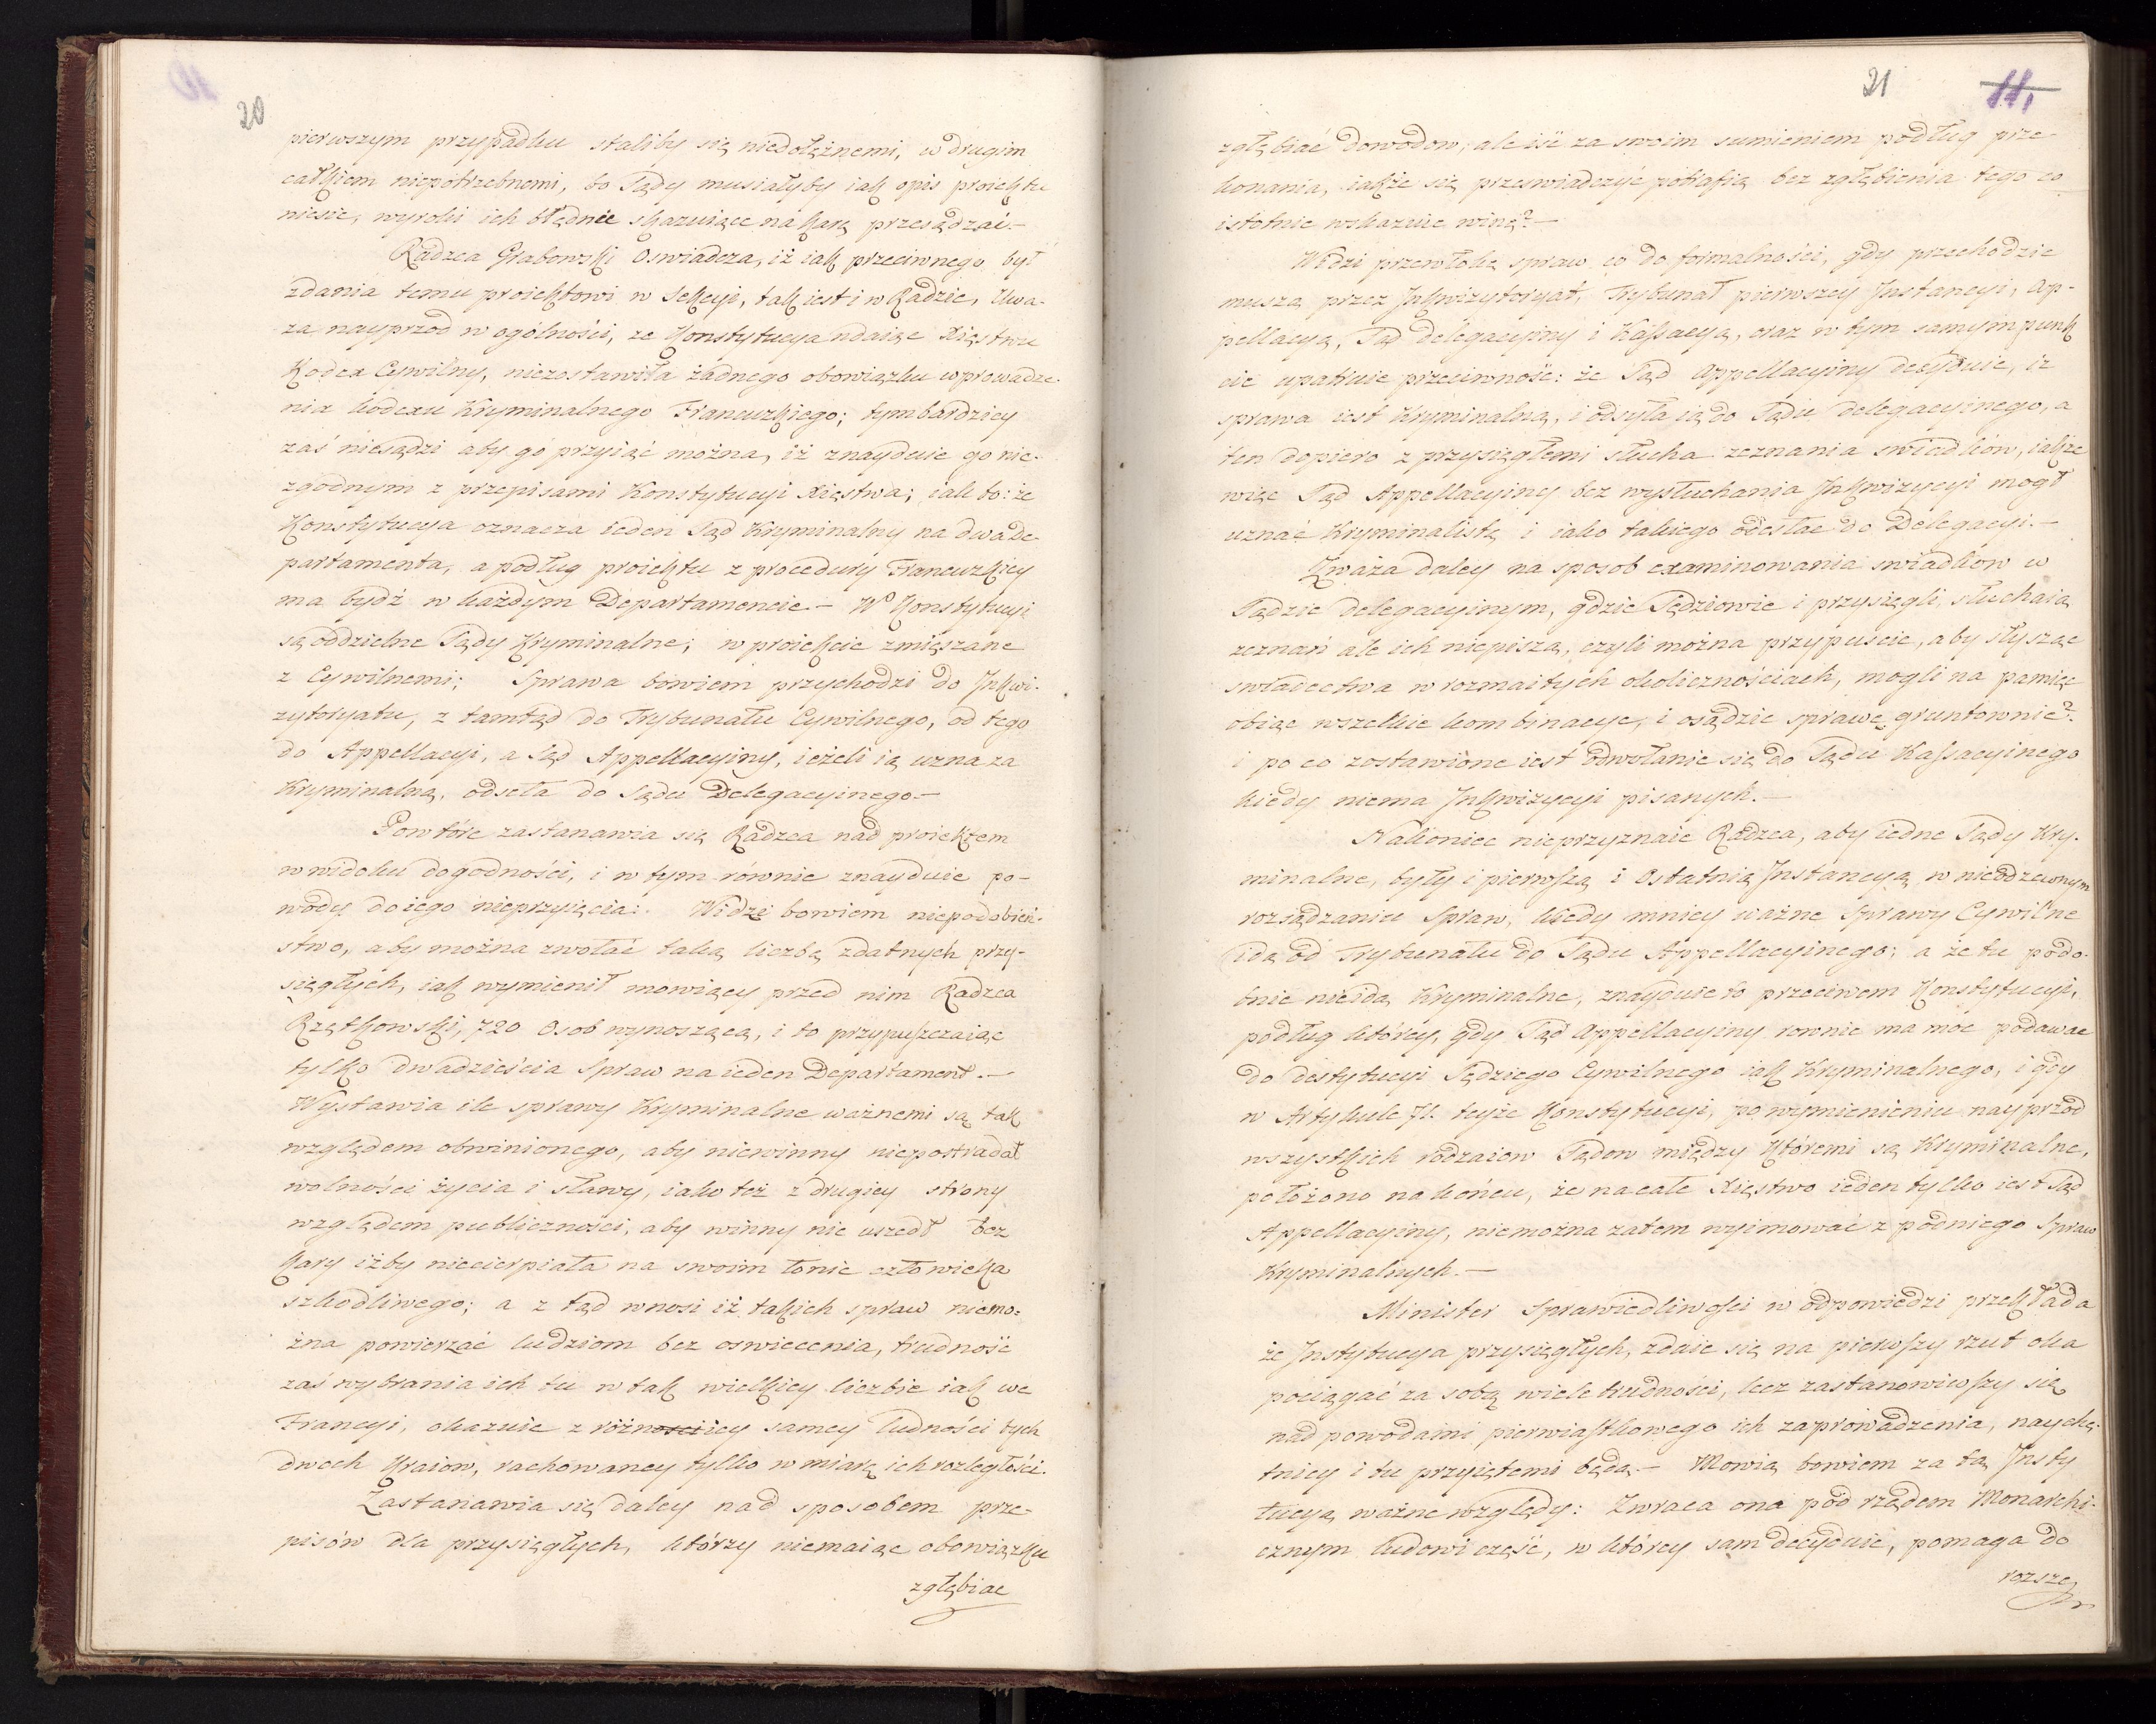 20
pierwszym przypadku staliby się niedołężnemi, w drugim
całkiem niepotrzebnemi, bo Sądy musiałyby iak opis proiektu
niesie, wyroki ich błędnie skazuiące na karę przesądzać.—
Radzca Grabowski Oswiadcza, iż iak przeciwnego był
zdania temu proiektowi w Sekcyi, tak iest i w Radzie, Uwa-
za nayprzod w ogólności, ze Konstytucya ndaiąc Xięstwu
Kodex Cywilny, niezostawiła żadnego obowiązku wprowadze-
nia kodexu Kryminalnego Francuzkiego; tymbardziey
zaś niesądzi aby go przyiąć można, iż znayduie go nie-
zgodnym z przepisami Konstytucyi Xięstwa; iak to: że
Konstytucya oznacza ieden Sąd Kryminalny na dwa De-
partamenta, a podług proiektu z procedury Francuzkiey
ma bydź w każdym Departamencie.— W Konstytucyi
są oddzielne Sądy Kryminalne; w proiekcie zmięszane
z Cywilnemi; Sprawa bowiem przychodzi do Inkwi-
zytoryatu, z tamtąd do Trybunału Cywilnego, od tego
do Appellacyi, a Sąd Appellacyiny, ieżeli ią uzna za
Kryminalną, odseła do Sądu Delegacyinego.—
Powtóre zastanawia się Radzca nad proiektem
w widoku dogodności, i w tym równie znayduie po-
wody do iego nieprzyięcia:. Widzi bowiem niepodobień-
stwo, aby można zwołać taką liczbę zdatnych przy-
sięgłych, iak wymienił mowiący przed nim Radzca
Rzętkowski, 720 Osob wynoszącą, i to przypuszczaiąc
tylko dwadzieścia Spraw na ieden Departament.—
Wystawia ile sprawy Kryminalne ważnemi są tak
względem obwinionego, aby niewinny niepostradał
wolności życia i sławy, iako też z drugiey strony
względem publiczności, aby winny nie uszedł bez
kary iżby niecierpiała na swoim łonie człowieka
szkodliwego; a z tąd wnosi iż takich spraw niemo-
żna powierzać ludziom bez oswiecenia, trudność
zaś wybrania ich tu w tak wielkiey liczbie iak we
Francyi, okazuie z różnosciicy samey ludności tych
dwoch Kraiow, rachowaney tylko w miarę ich rozległości.
Zastanawia się daley nad sposobem prze-
pisów dla przysięgłych, którzy niemaiąc obowiązku
zgłębiac
21 11,
zgłębiać dowodow, ale iść za swoim sumieniem podług prze
konania, iakże się przeswiadczyć potrafią bez zgłębienia tego co
istotnie wskazuie winę?—
Widzi przewłokę spraw co do formalności, gdy przechodzić
muszą przez Inkwizytoryat, Trybunał pierwszey Instancyi, Ap-
pellacyą, Sąd delegacyiny i Kassacyą, oraz w tym samym punk
cie upatruie przeciwność: że Sąd Appellacyiny decyduie, iż
sprawa iest Kryminalną, i odsyła ią do Sądu delegacyinego, a
ten dopiero z przysięgłemi słucha zeznania swiadków, iakże
więc Sąd Appellacyiny bez wysłuchania Inkwizycyi mogł
uznać Kryminalistę i iako takiego odesłac do Delegacyi.—
Zważa daley na sposob examinowania swiadkow w
Sądzie delegacyinym, gdzie Sędziowie i przysięgli słuchaią
zeznań ale ich niepiszą, czyli można przypuscic, aby słysząc
swiadectwa w rozmaitych okolicznościach, mogli na pamięc
obiąc wszelkie kombinacye, i osądzic sprawę gruntownie?
i po co zostawione iest odwołanie się do Sądu Kassacyinego
kiedy niema Inkwizycyi pisanych.—
Nakoniec nieprzyznaie Radzca, aby iedne Sądy Kry-
minalne, były i pierwszą i Ostatnią Instancyą w nieodzownym
rozsądzaniu Spraw, kiedy mniey ważne Sprawy Cywilne
idą od Trybunału do Sądu Appellacyinego; a że tu podo-
bnie nieidą Kryminalne, znayduie to przeciwem Konstytucyi,
podług którey, gdy Sąd Appellacyiny rownie ma moc podawac
do destytucyi Sędziego Cywilnego iak Kryminalnego, i gdy
w Artykule 71. teyże Konstytucyi, po wymienieniu nayprzod
wszystkich rodzaiow Sądow między któremi są Kryminalne,
położono na końcu, że na całe Xięstwo ieden tylko iest Sąd
Appellacyiny, niemożna zatem wyimować z pod niego Spraw
Kryminalnych.—
Minister Sprawiedliwości w odpowiedzi przekłada
że Instytucya przysięgłych, zdaie się na pierwszy rzut oka
pociągać za sobą wiele trudności, lecz zastanowiwszy się
nad powodami pierwiastkowego ich zaprowadzenia, nayche-
tniey i tu przyiętemi będą.— Mowią bowiem za tą Insty
tucyą ważne względy: Zwraca ona pod rządem Monarchi-
cznym ludowi część, w którey sam decyduie, pomaga do
rozsze